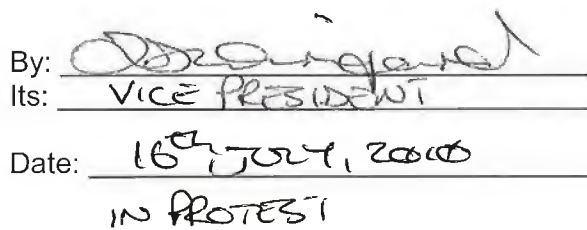 By:
Its: VICE PRESIDENT
Date: 16th JULY, 2010
IN PROTEST